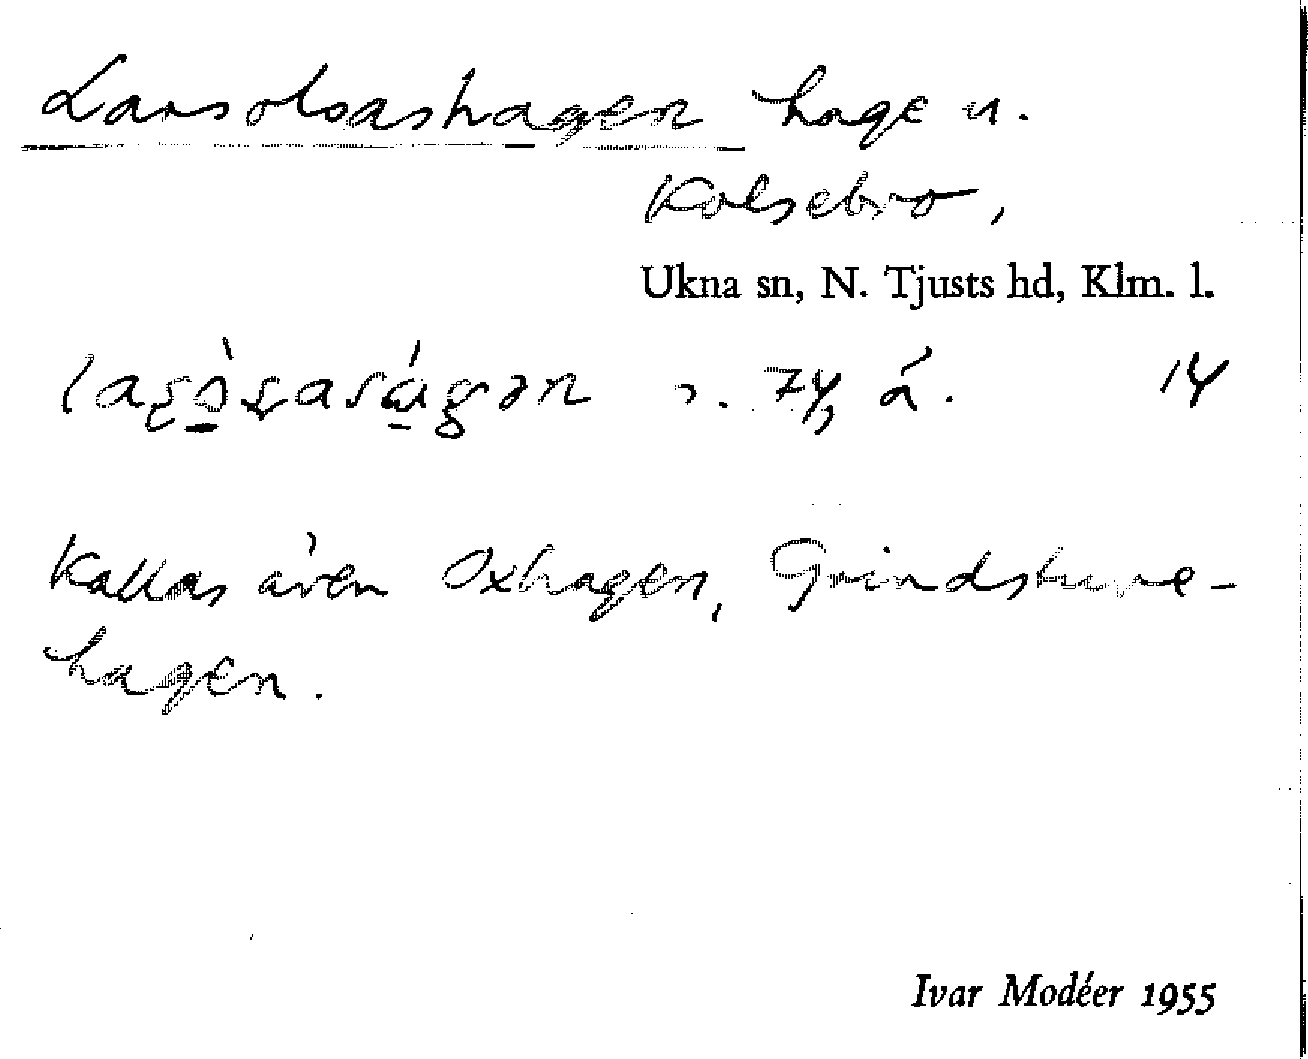 Larsolsashagen hage u.
Kolsebro,
Ukna sn, N. Tjusts hd, Klm. l.
14
Kallas även Oxhagen, Grindstuve-
hagen.
Ivar Modéer 1955